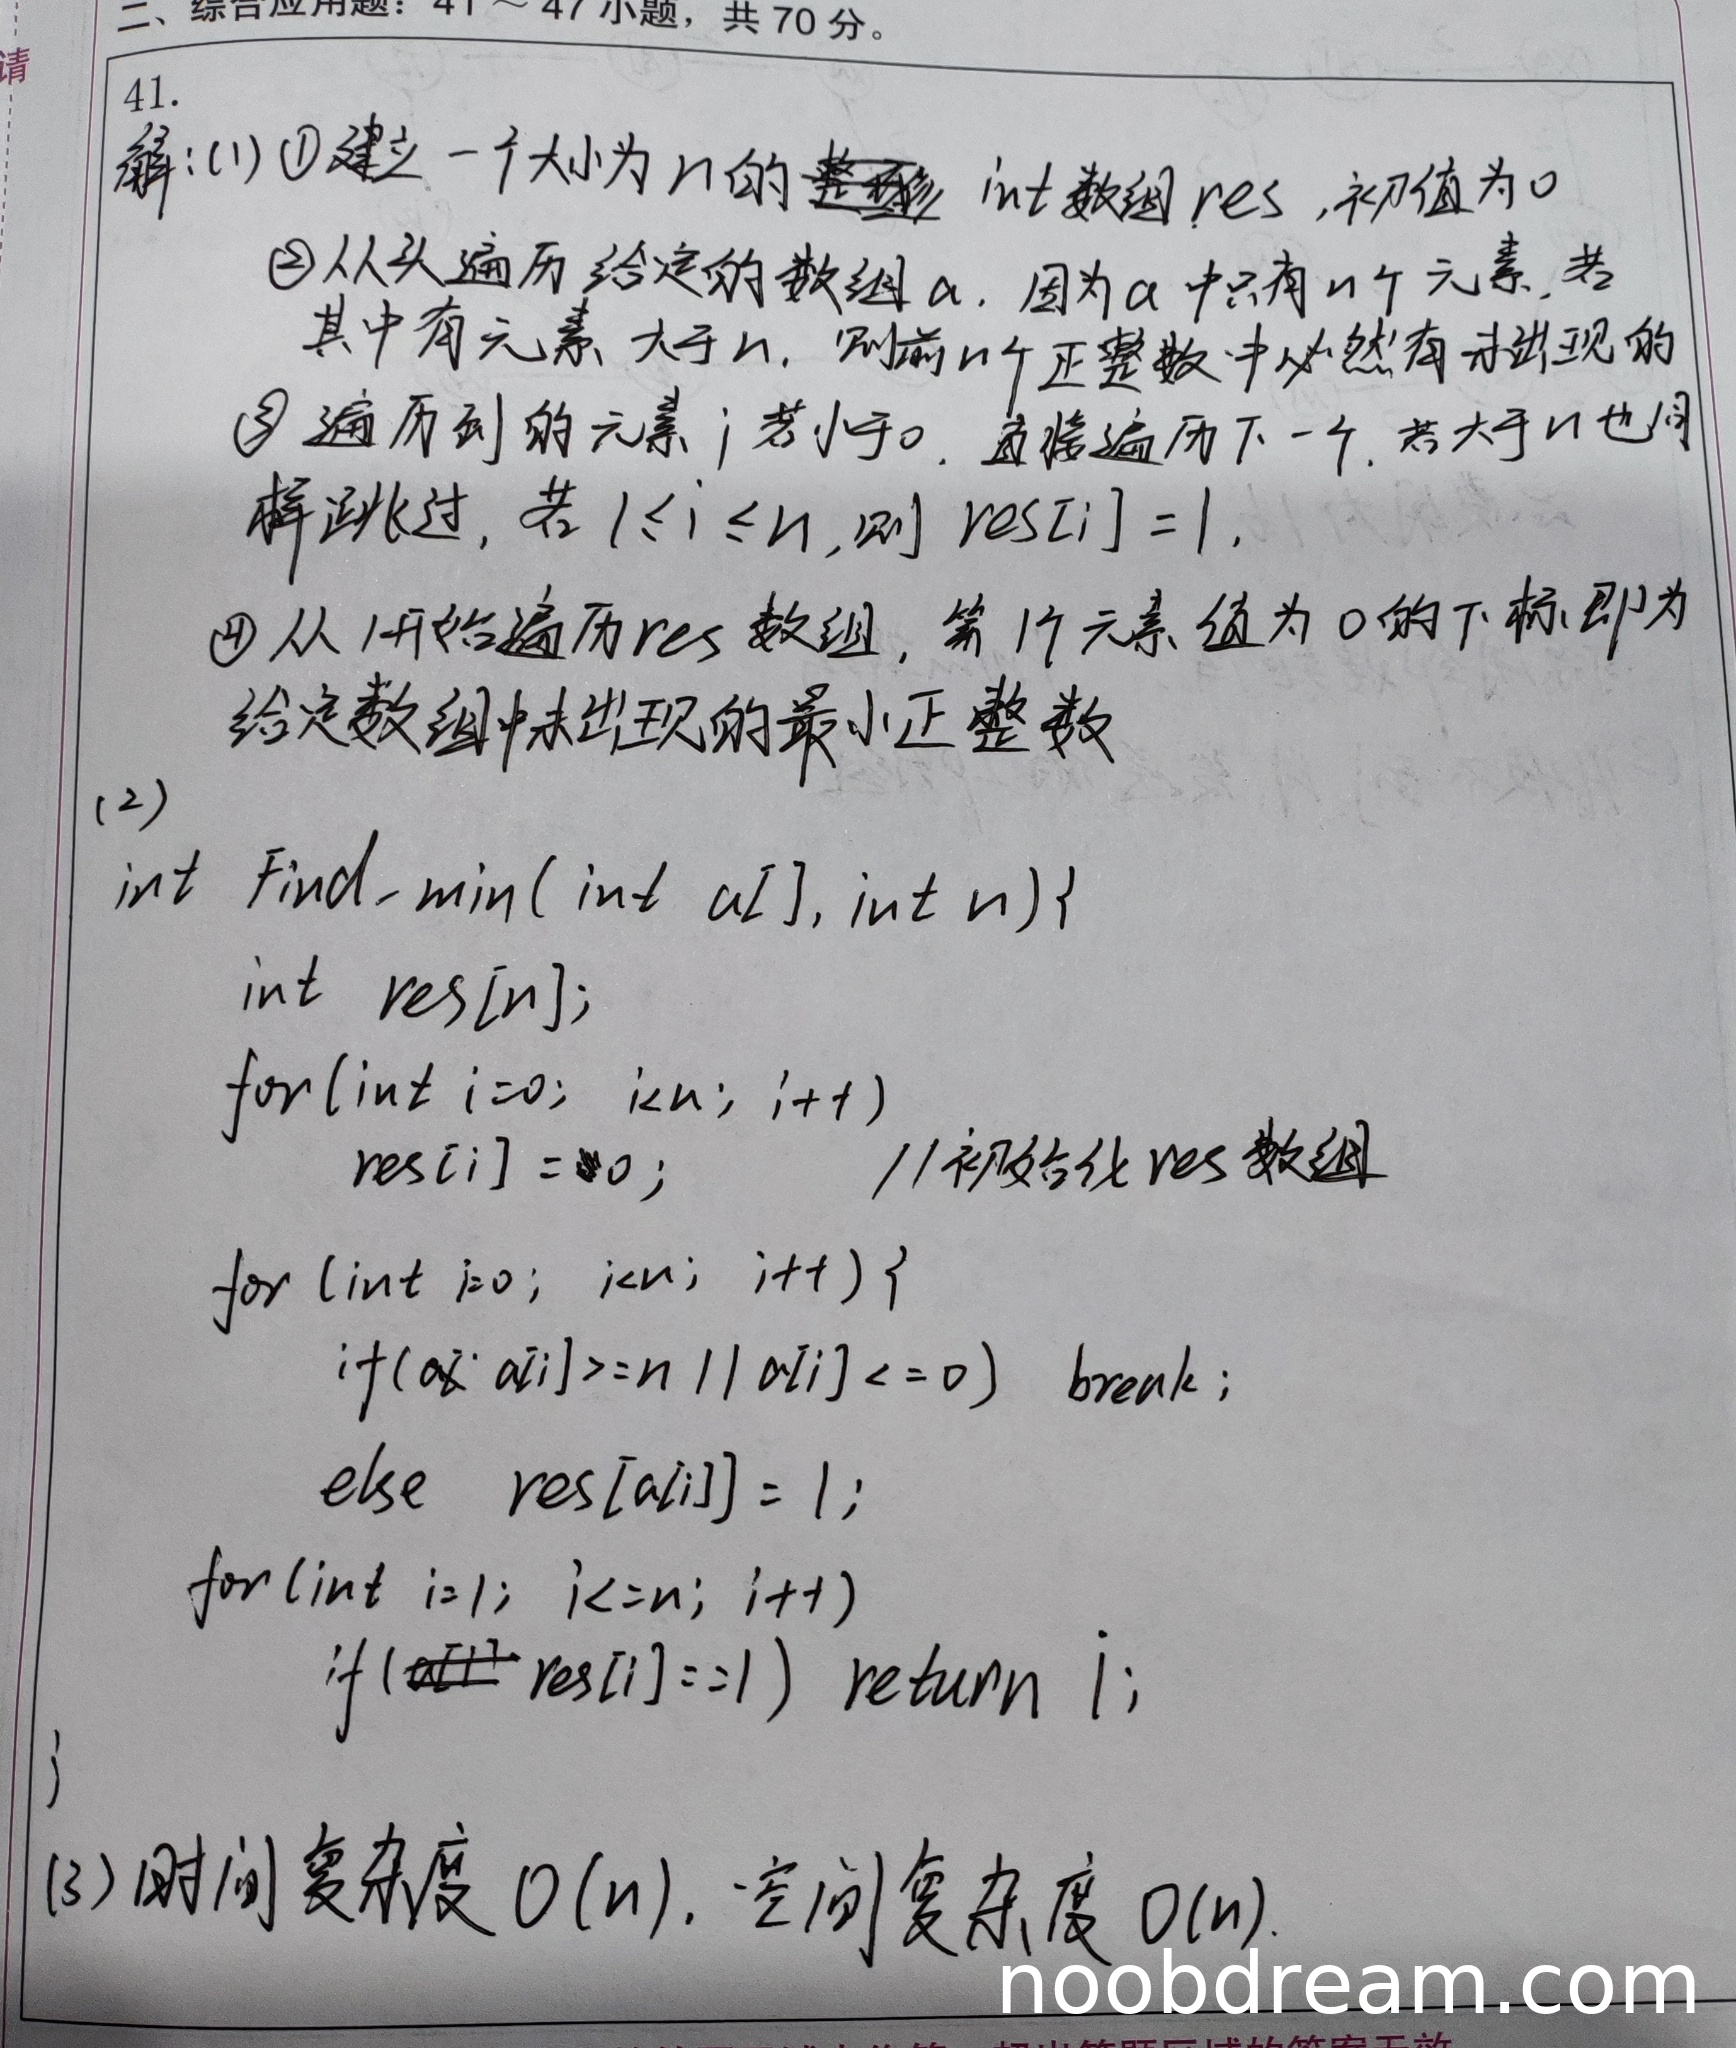 二、综合应用题：41～47小题，共70分。
请
41.
解:(1)①建立一个大小为n的 int数组res,初值为0
②从头遍历给定的数组a. 因为a中只有n个元素,若
其中有元素大于n, 则前n个正整数中必然有未出现的
③遍历到的元素i若小于0, 直接遍历下一个, 若大于n也同
样跳过, 若1≤i≤n,则res[i]=1,
④从1开始遍历res数组, 第1个元素值为0的下标即为
给定数组中未出现的最小正整数
(2)
int Find_min(int a[], int n){
int res[n];
for(int i=0; i<n; i++)
res[i]=0; //初始化res数组
for(int i=0; i<n; i++){
if(a[i]>=n || a[i]<=0) break;
else res[a[i]]=1;
for(int i=1; i<=n; i++)
if(res[i]==1) return i;
}
(3)时间复杂度O(n). 空间复杂度O(n).
noobdream.com